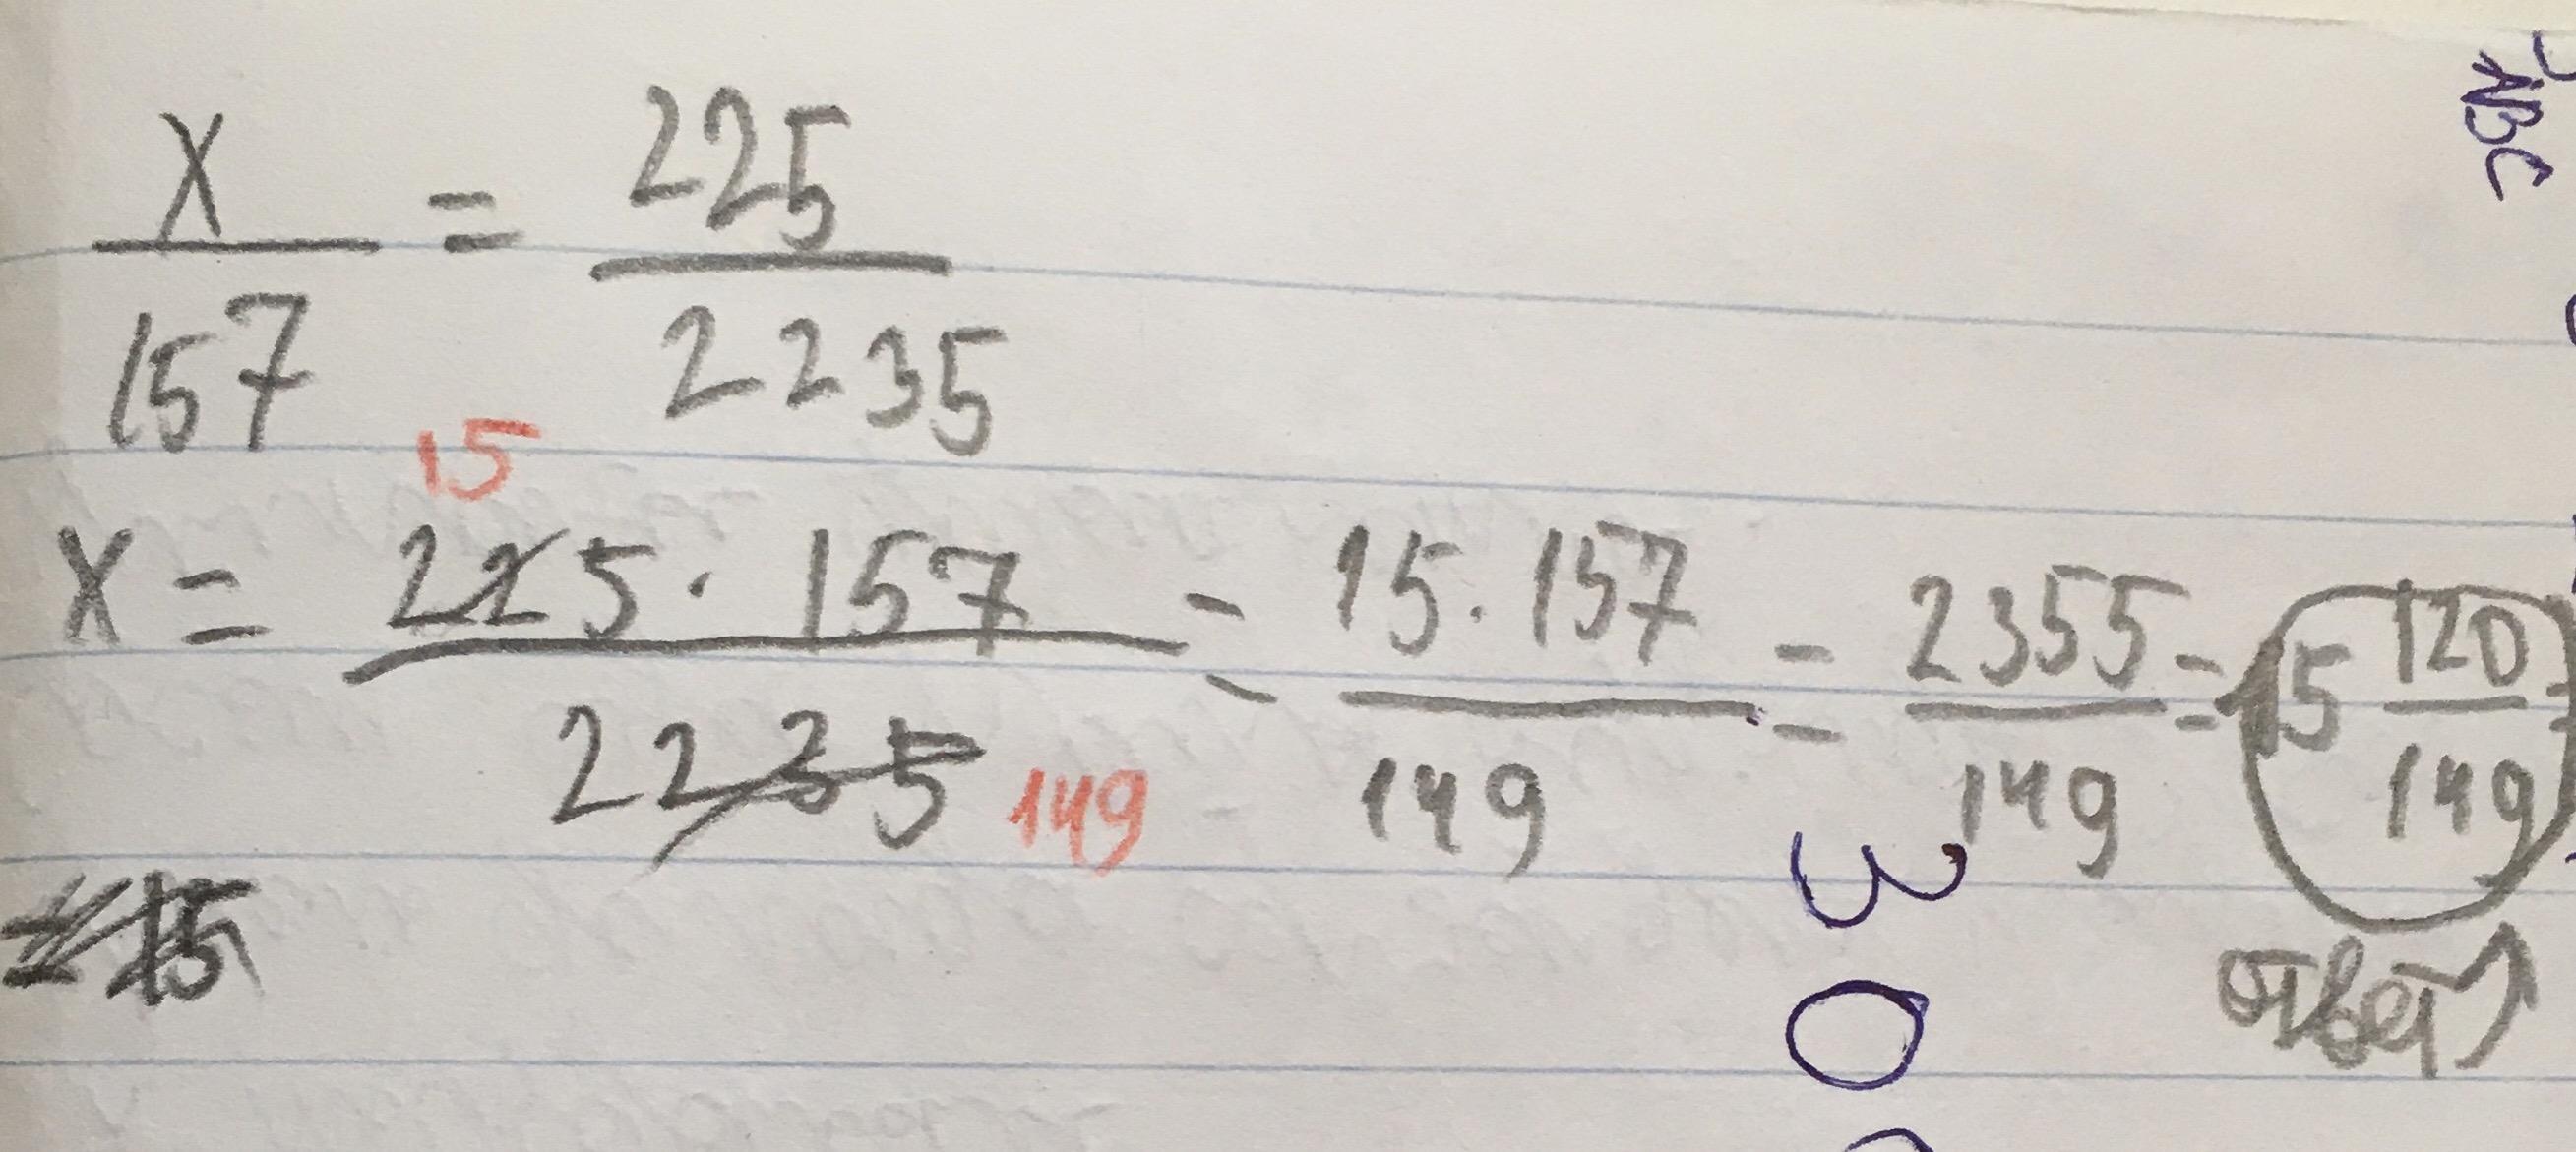 x/157 = 225/2235
15
x = 225 · 157 / 2235 = 15 · 157 / 149 = 2355/149 = 15 120/149 =
149
= 15
ответ
ABC
3 0